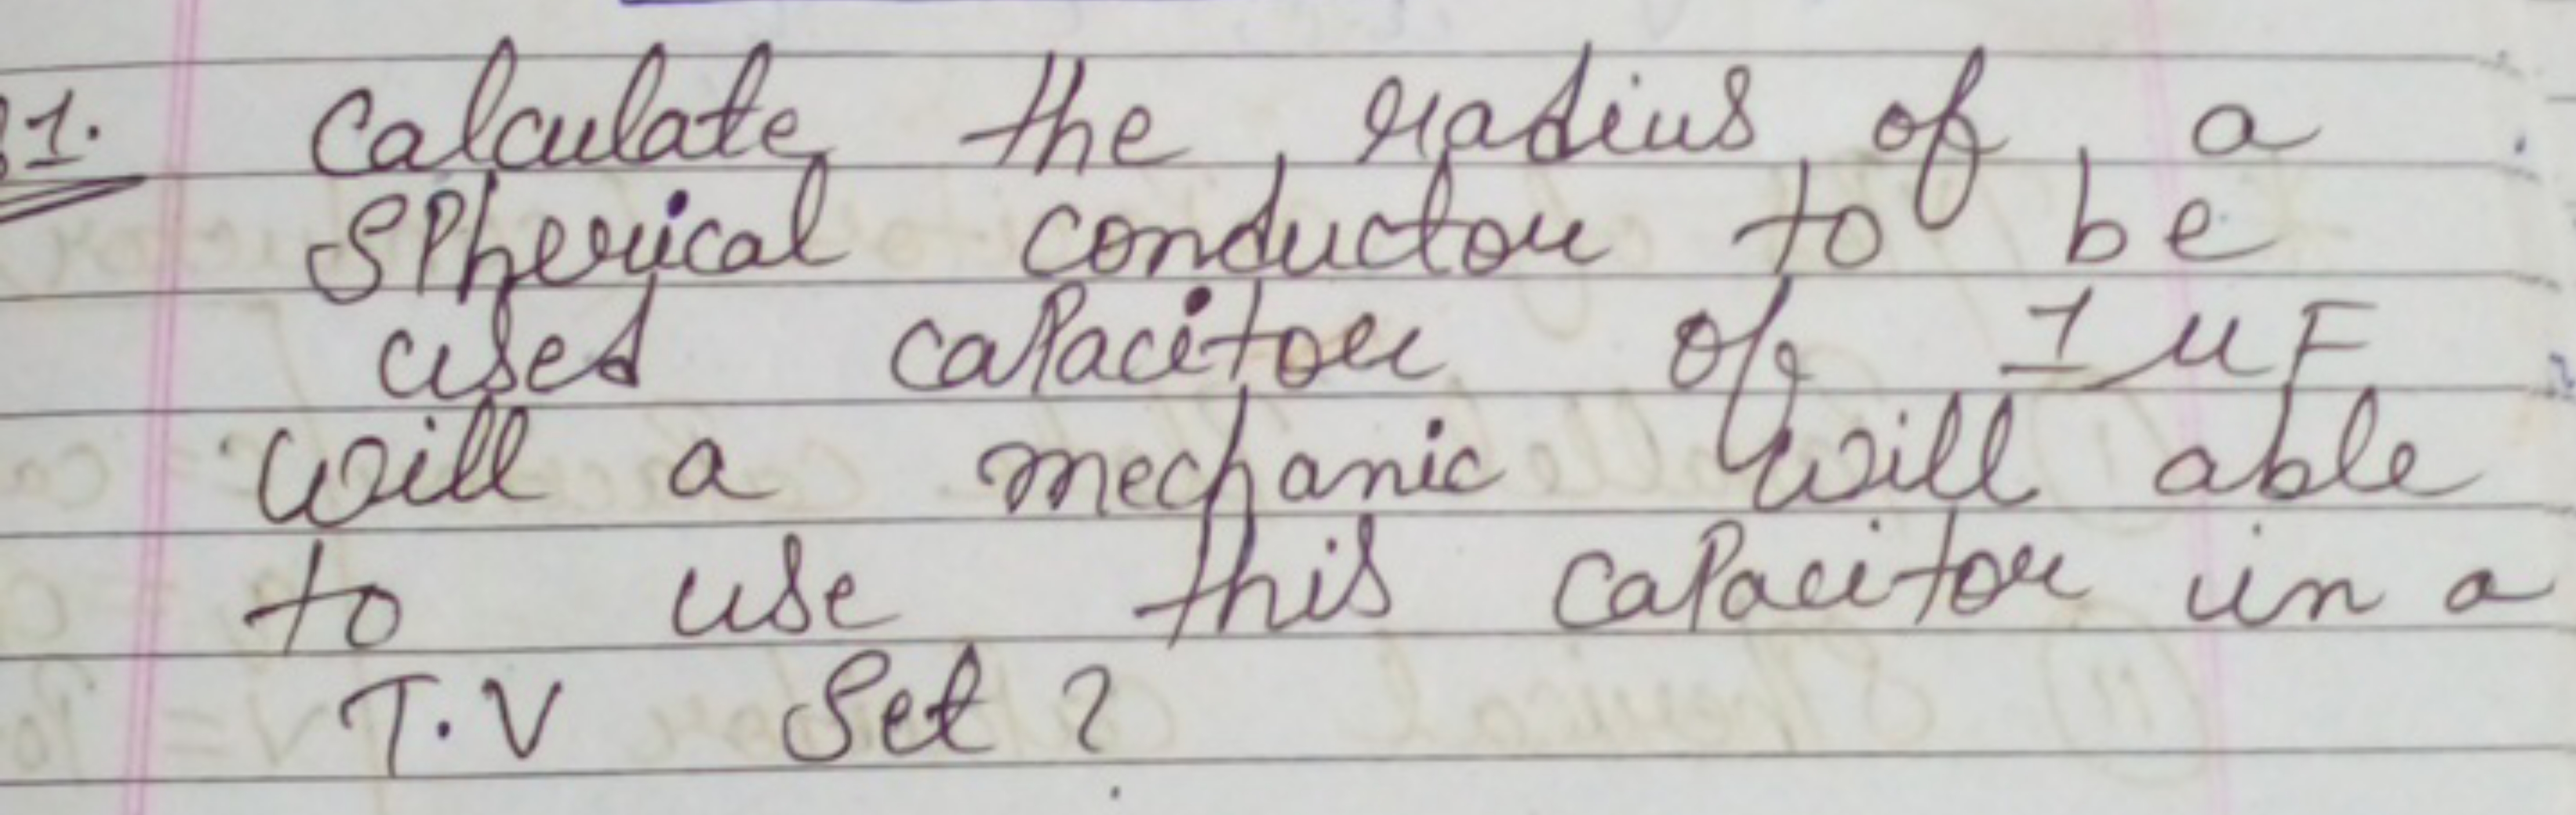 Q1. Calculate the radius of a
Spherical conductor to be
used capacitor of 1 μF
will a mechanic will able
to use this capacitor in a
T.V Set ?